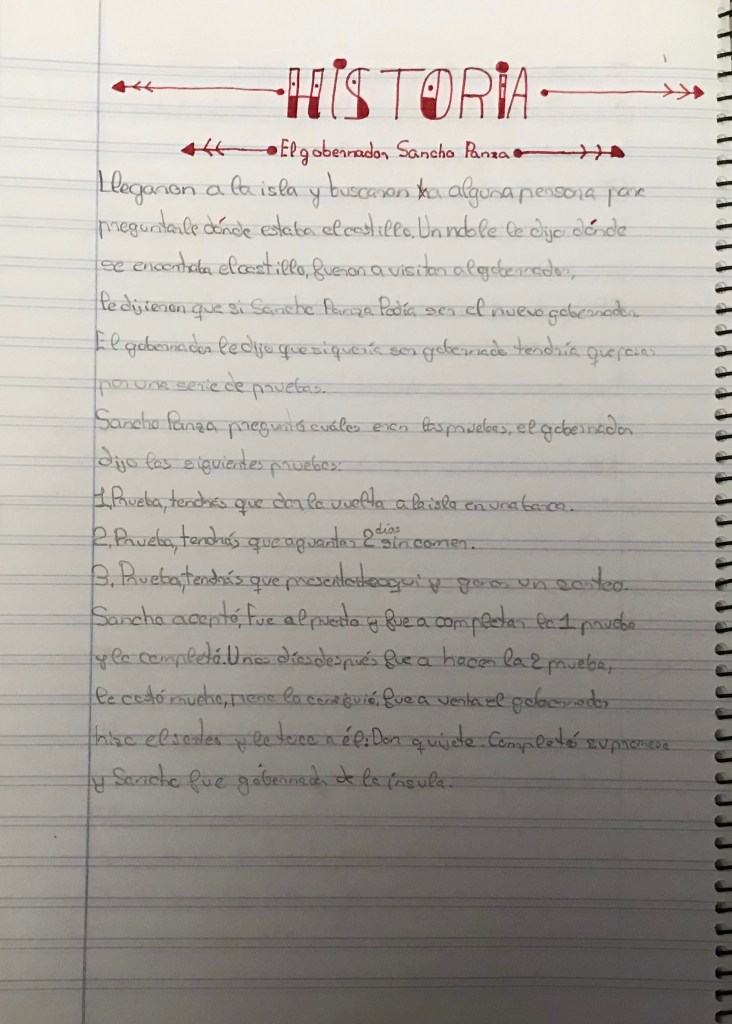 HISTORIA
El gobernador Sancho Panza
Llegaron a la isla y buscaron a alguna persona para
preguntarle dónde estaba el castillo. Un noble le dijo dónde
se encontraba el castillo, fueron a visitar al gobernador,
le dijieron que si Sancho Panza Podía ser el nuevo gobernador.
El gobernador le dijo que si quería ser gobernado tendría que pasar
por una serie de pruebas.
Sancho Panza preguntó cuáles eran las pruebas, el gobernador
dijo las siguientes pruebas:
1. Prueba, tendrás que dar la vuelta a la isla en una barca.
2. Prueba, tendrás que aguantar 2 días sin comer.
3. Prueba, tendrás que presentarte aquí y ganar un sorteo.
Sancho aceptó, fue al puerto y fue a completar la 1 prueba
y la completó. Unos días después fue a hacer la 2 prueba,
le costó mucho, la consiguió, fue a el gobernador
hizo el y le toco a él: Don quijote. Completó su promesa
y Sancho fue gobernador de la ínsula.